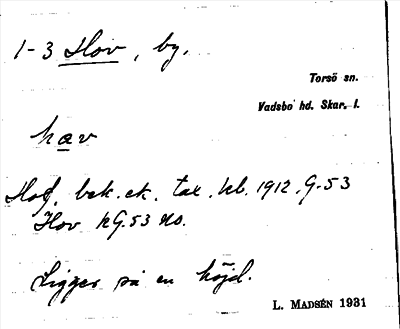 1-3 Hov, by.
Torsö sn.
Vadsbo hd. Skar. l.
hav
Hof, bek. ek. tax. kl. 1912, G. 53
Hov kG. 53 no.
Ligger på en höjd.
L. MADSÉN 1931